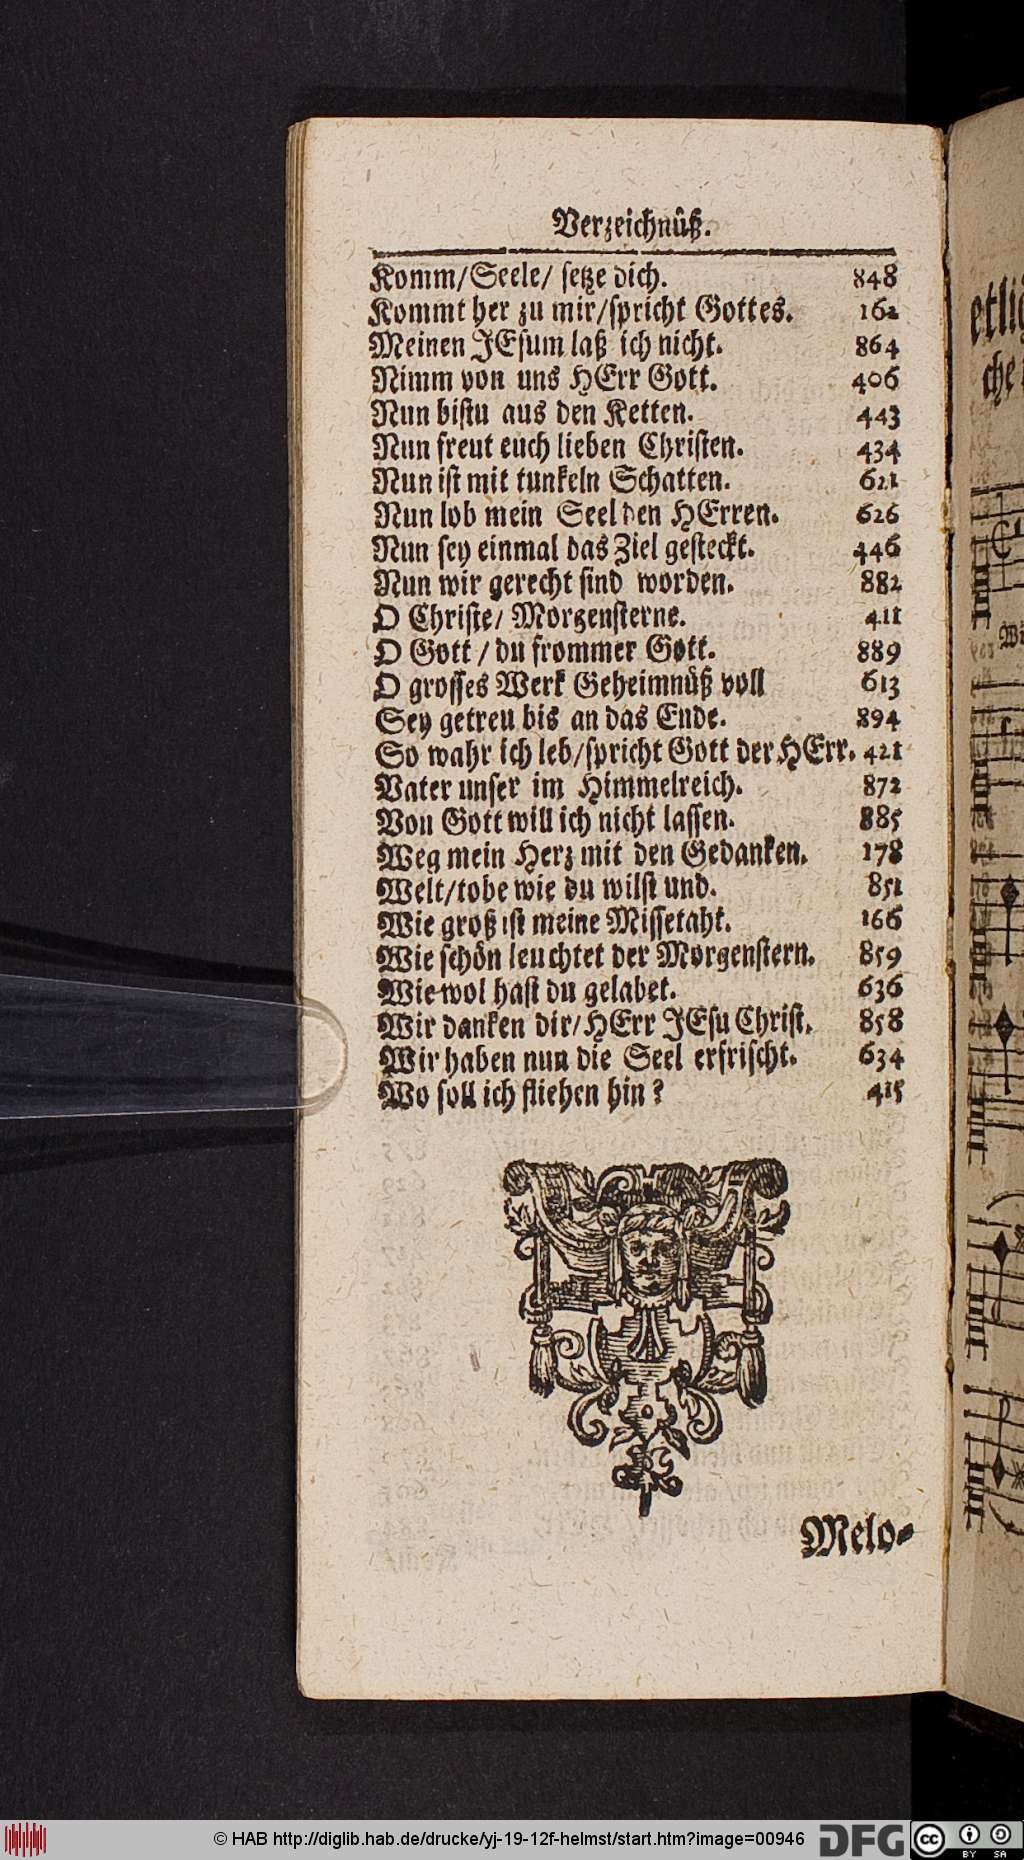 Verzeichnüß.
Komm/Seele/ setze dich. 848
Kommt her zu mir/spricht Gottes. 162
Meinen JEsum laß ich nicht. 864
Nimm von uns HErr Gott. 406
Nun bistu aus den Ketten. 443
Nun freut euch lieben Christen. 434
Nun ist mit tunkeln Schatten. 621
Nun lob mein Seel den HErren. 626
Nun sey einmal das Ziel gesteckt. 446
Nun wir gerecht sind worden. 882
O Christe/ Morgensterne. 411
O Gott / du frommer Gott. 889
O grosses Werk Geheimnüß voll 613
Sey getreu bis an das Ende. 894
So wahr ich leb/spricht Gott der HErr. 421
Vater unser im Himmelreich. 872
Von Gott will ich nicht lassen. 885
Weg mein Herz mit den Gedanken. 178
Welt/tobe wie du wilst und. 851
Wie groß ist meine Missetaht. 166
Wie schön leuchtet der Morgenstern. 859
Wie wol hast du gelabet. 636
Wir danken dir/HErr JEsu Christ. 858
Wir haben nun die Seel erfrischt. 634
Wo soll ich fliehen hin? 415
Melo-
etli
che
© HAB http://diglib.hab.de/drucke/yj-19-12f-helmst/start.htm?image=00946
DFG
cc
BY SA